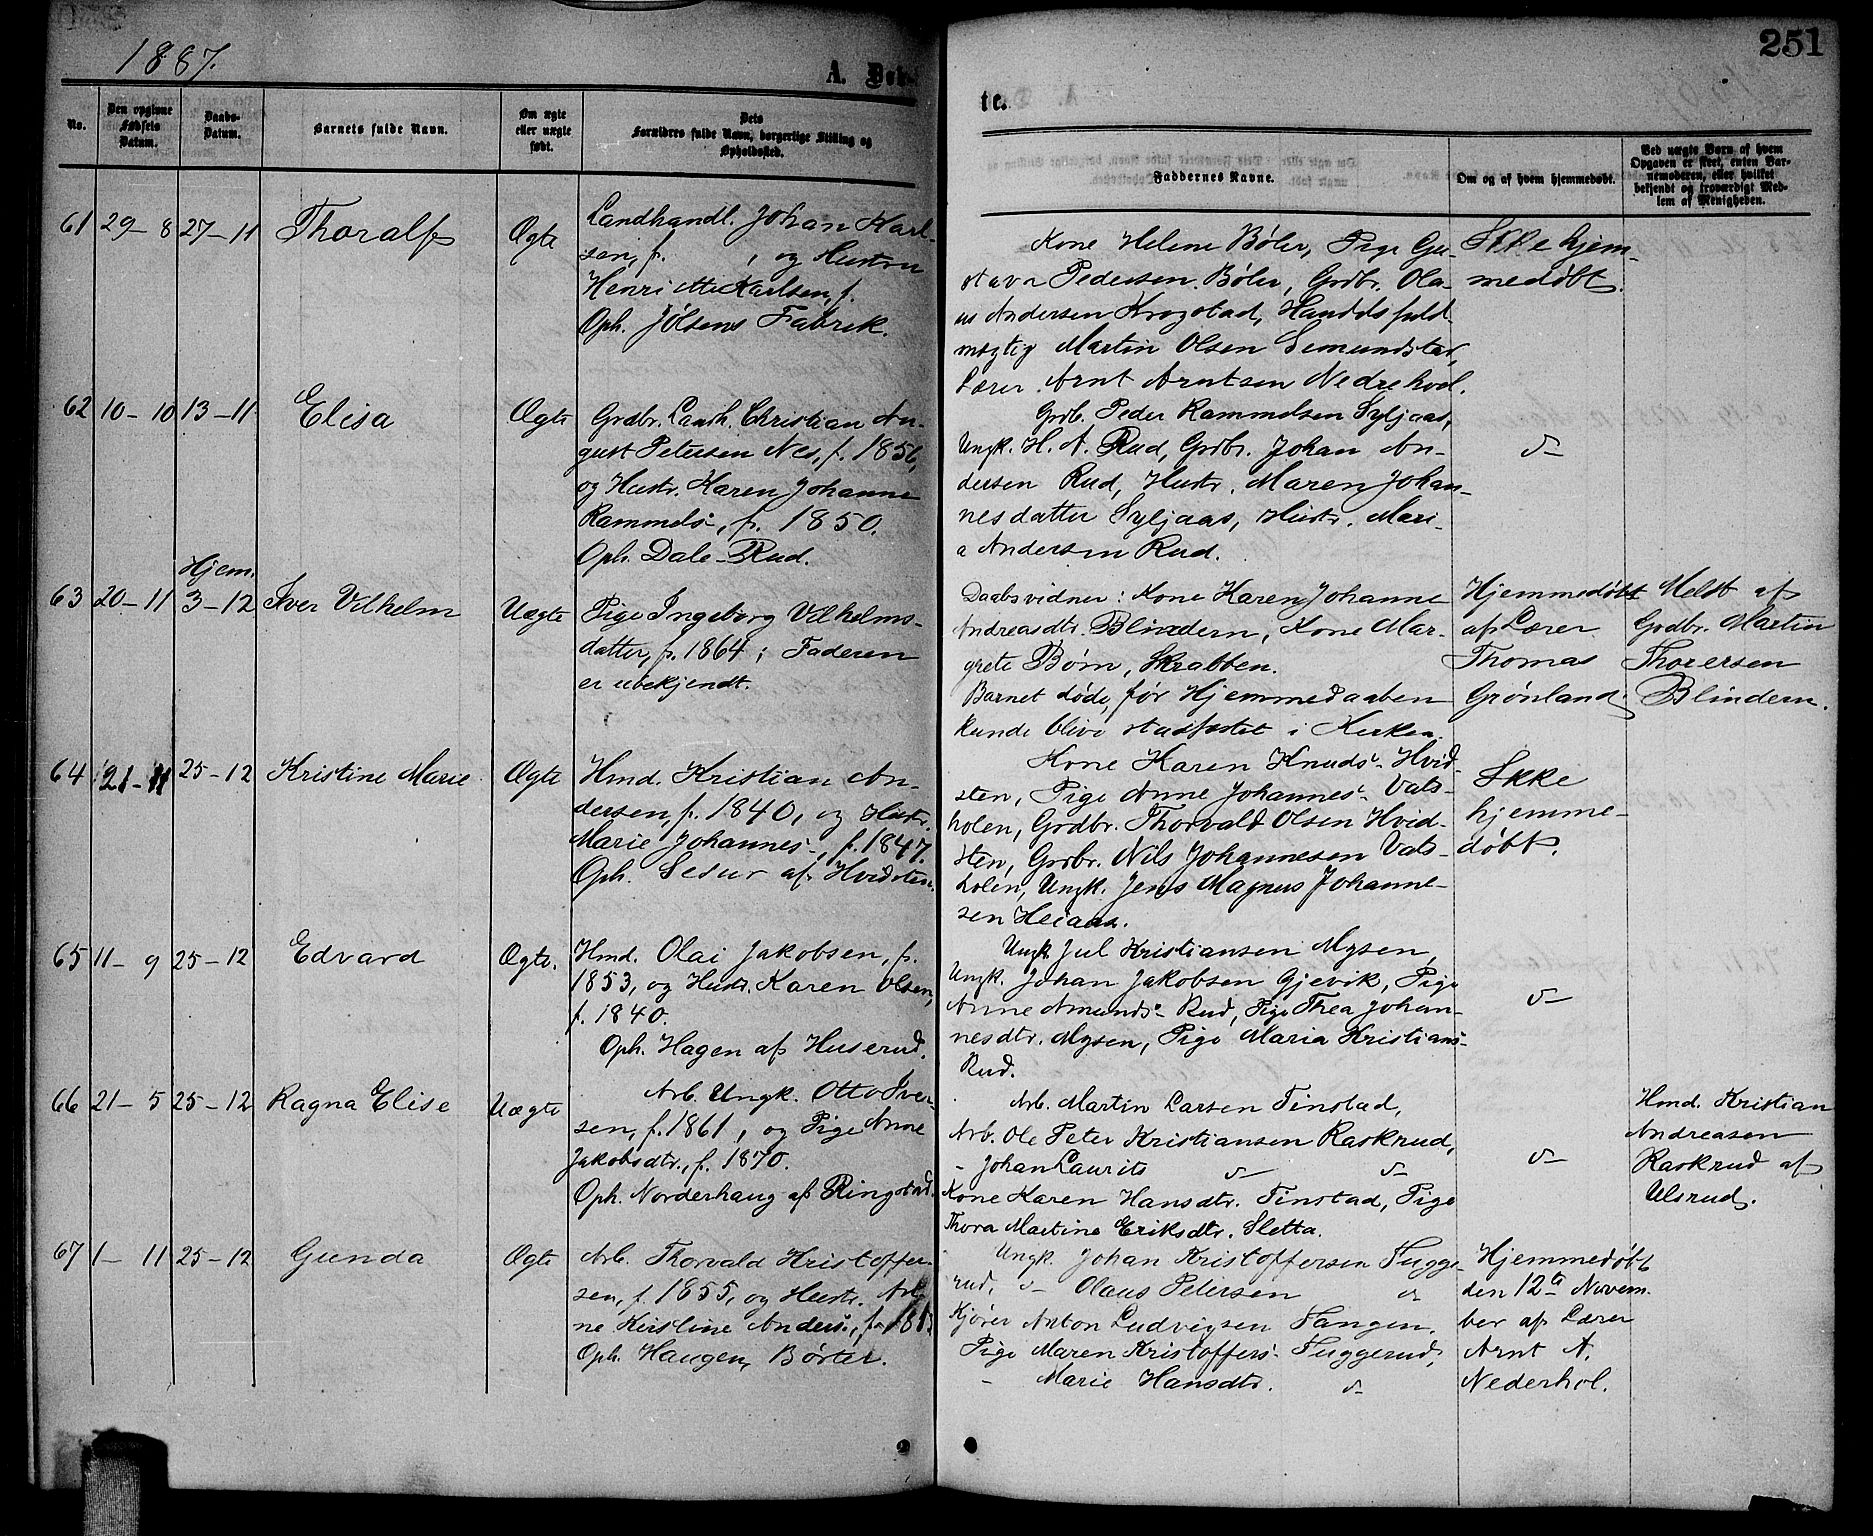 1887.
A. Døb-
te.
251
No.
Den opgivne Fødsels Datum.
Daabs-Datum.
Barnets fulde Navn.
Om ægte eller uægte født.
Dets Forældres fulde Navn, borgerlige Stilling og Opholdssted.
Faddernes Navne.
Om og af hvem hjemmedøbt.
Ved uægte Børn af hvem Opgaven er skeet, enten Barnemoderen, eller hvilket bekjendt og troværdigt Medlem af Menigheden.
61 29-8 27-11 Thoralf Ægte
Landhandl. Johan Karl-
sen, f. , og Hustru
Henriette Karlsen, f.
Oph. Jølsens Fabrik.
Kone Helene Bøler, Pige Gu-
stava Pedersen Bøler, Grdbr. Ola-
us Andersen Krogstad, Handelsfuld-
mægtig Martin Olsen Semundstad,
Lærer Arnt Arntsen Nedrehol.
Ikke hjem-
medøbt.
62 10-10 13-11 Elisa Ægte
Grdbr. Landh. Christian Au-
gust Petersen Nes, f. 1856,
og Hustr. Karen Johanne
Rammels-, f. 1850.
Oph. Dale-Rud.
Grdb. Peder Rammelsen Syljaas,
Ungk. H. A. Rud, Grdbr. Johan An-
dersen Rud, Hustr. Maren Johan-
nesdatter Syljaas, Hustr. Mari-
a Andersen Rud.
63 20-11 Hjem. 3-12 Iver Vilhelm Uægte
Pige Ingeborg Vilhelms-
datter, f. 1864; Faderen
er ubekjendt.
Daabsvidner: Kone Karen Johanne
Andreasdtr. Blindern, Kone Mar-
grete Bøm, Skrabben.
Barnet døde, før Hjemmedaaben
kunde blive stadfæstet i Kirken.
Hjemmedøbt
af Lærer
Thomas
Grønland.
Meldt af
Grdbr. Martin
Thorersen
Blindern.
64 21-11 25-12 Kristine Marie Ægte
Hmd. Kristian An-
dersen, f. 1840, og Hustr.
Marie Johannes-, f. 1847.
Oph. Setur af Hvidsten.
Kone Karen Knuds- Hvid-
sten, Pige Anne Johannes- Vats-
holen, Grdbr. Thorvald Olsen Hvid-
sten, Grdbr. Nils Johannesen Vats-
holen, Ungk. Jens Magnus Johanne-
sen Heiaas.
Ikke
hjemme-
døbt.
65 11-9 25-12 Edvard Ægte.
Hmd. Olai Jakobsen, f.
1853, og Hustr. Karen Olsen,
f. 1840.
Oph. Hagen af Huserud.
Ungk. Jul Kristiansen Mysen,
Ungk. Johan Jakobsen Gjevik, Pige
Anne Amunds- Rud, Pige Thea Johan-
nesdtr. Mysen, Pige Maria Kristians-
Rud.
66 21-5 25-12 Ragna Elise Uægte
Arb. Ungk. Otto Iver-
sen, f. 1861, og Pige Anne
Jakobsdtr., f. 1870.
Oph. Norderhaug af Ringstad.
Arb. Martin Larsen Tinstad,
Arb. Ole Peter Kristiansen Raskrud,
- Johan Laurits
Kone Karen Hansdtr. Tinstad, Pige
Thora Martine Eriksdtr. Sletta.
Hmd. Kristian
Andreasen
Raskrud af
Ulsrud.
67 1-11 25-12 Gunda Ægte
Arb. Thorvald Kristoffer-
sen, f. 1855, og Hustr. An-
ne Kirstine Anders-, f.
Oph. Haugen, Børter.
Ungk. Johan Kristoffersen Tugge-
rud, Olaus Petersen
Kjører Anton Ludvigsen Tangen,
Pige Maren Kristoffers- Tuggerud,
- Marie Hansdtr.
Hjemmedøbt
den 12te Novem-
ber af Lærer
Arnt A.
Nederhol.